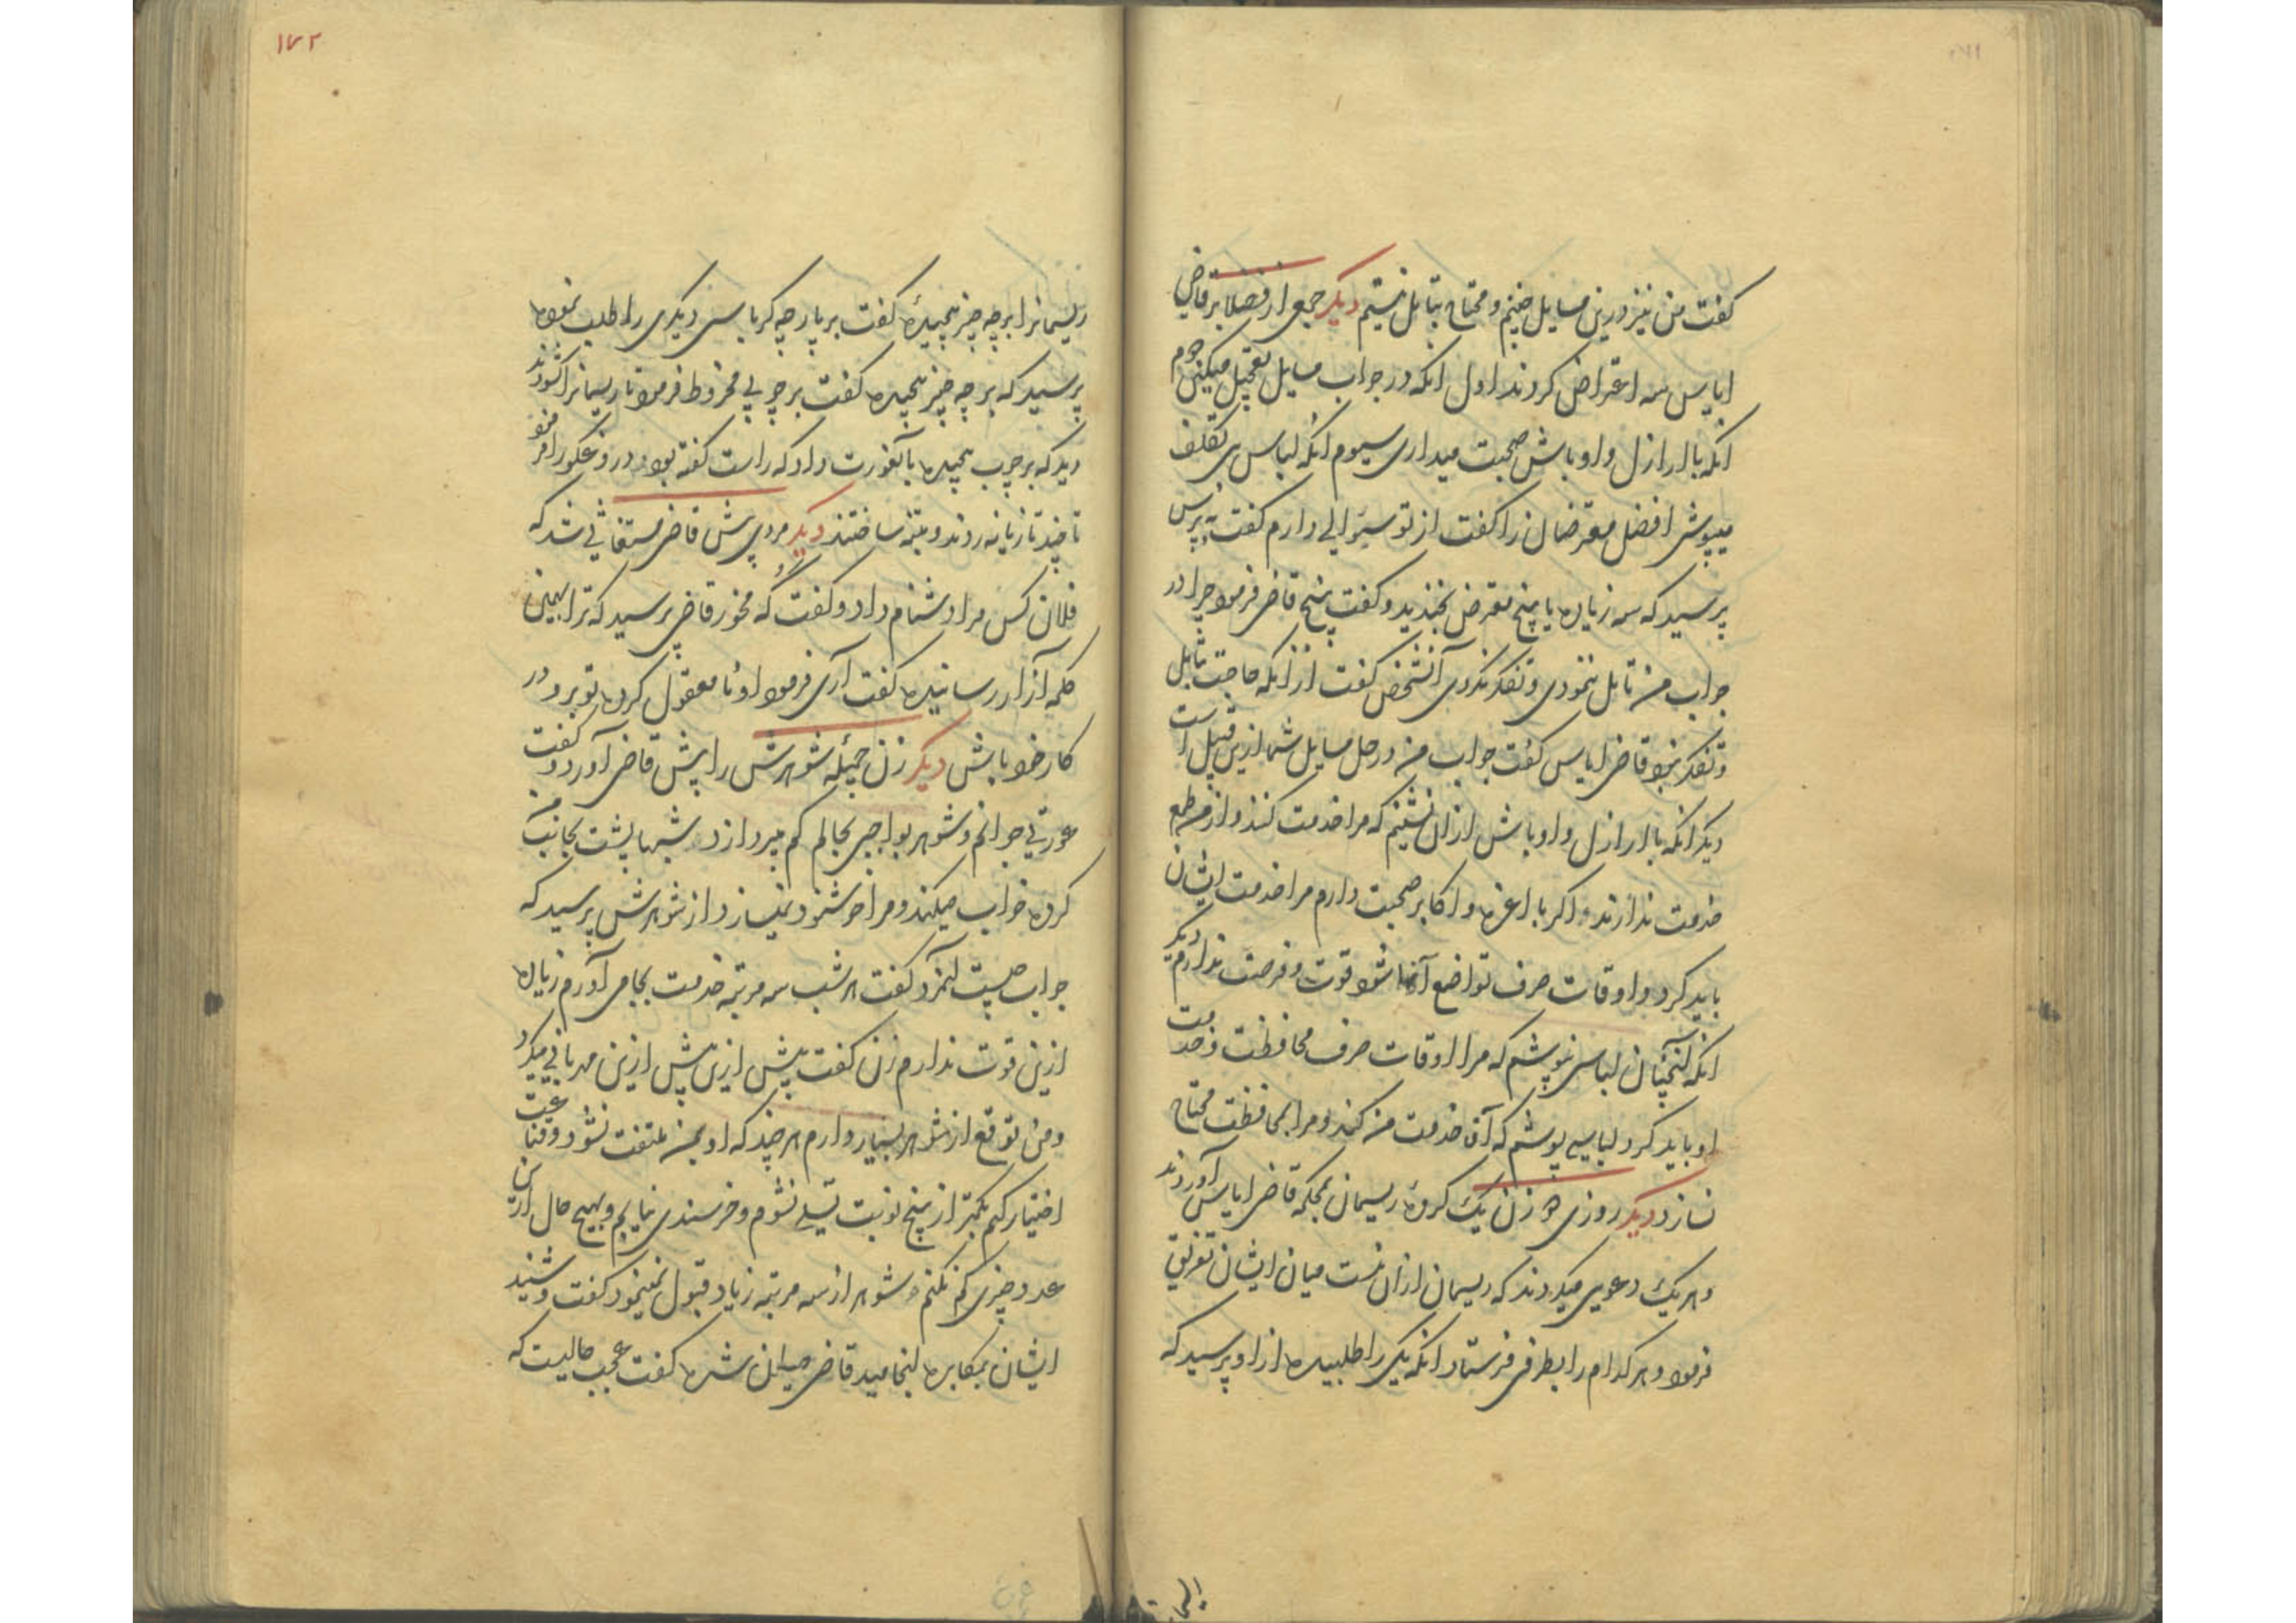 گفت من نیز درین مسایل چنینم و محتاج بتامل نیستم دیگر جمعی از فضلا بر قاضی
ایاس سه اعتراض کردند اول انکه در جواب مسایل تعجیل میکنی دوم
انکه باارازل و اوباش صحبت میداری سیوم انکه لباس بی تکلف
میپوشی افضل معترضان را گفت از تو سوالی دارم گفت بپرس
پرسید که سه زیاده یا پنج معترض بخندید و گفت پنج قاضی فرمود چرا در
جواب من تامل ننمودی و تفکر نکردی آنشخص گفت از انکه حاجت بتامل
و تفکر نبود قاضی ایاس گفت جواب من در حل مسایل شما ازین قبیل است
دیگر انکه باارازل و اوباش ازان نشینم که مرا خدمت کنند و از من طمع
خدمت ندارند و اگر با اعزه و اکابر صحبت دارم مرا خدمت ایشان
باید کرد و اوقات صرف تواضع آنها شود قوت و فرصت ندارم دیگر
انکه آنچنان لباس نپوشم که مرا اوقات صرف محافظت و خدمت
او باید کرد لباسی پوشم که آن خدمت من کند و مرا بمحافظت محتاج
نسازد دیگر روزی دو زن یک کروهه ریسمان بمحکمه قاضی ایاس آوردند
و هر یک دعوی میکردند که ریسمان ازان منست میان ایشان تفریق
فرمود و هر کدام را بطرفی فرستاد انکه یکی را طلبیده از او پرسید که
۱۷۲
ریسمانرا بر چه چیز پیچیده گفت بر پارچه کرباسی دیگری را طلب نموده
پرسید که بر چه چیز پیچیده گفت بر چوبی مخروط فرمود تا ریسمانرا کشودند
دید که بر چوب پیچیده بآنعورت داد که راست گفته بود و دروغگو را فرمود
تا چند تازیانه زدند و تنبیه ساختند دیگر مردی پیش قاضی مستغاثی شد که
فلان کس مرا دشنام داد و گفت گه مخور قاضی پرسید که ترا بهمین
کلمه آزار رسانیده گفت آری فرمود او نامعقول کرده تو برو در
کار خود باش دیگر زن جمیله شوهرش را پیش قاضی آورد و گفت
عورتی جوانم و شوهر بواجبی بحالم کم میپردازد شبها پشت بجانب من
کرده خواب میکند و مرا خوشنود نمیسازد از شوهرش پرسید که
جواب چیست آنمرد گفت هر شب سه مرتبه خدمت بجا می آورم زیاده
ازین قوت ندارم زن گفت پیش ازین پیش ازین مهربانی میکرد
و من توقع از شوهر بسیار دارم هر چند که او بمن ملتفت نشود و قناعت
اختیار کنم بکمتر از پنج نوبت تسلی نشوم و خرسندی نیابم و بهیچ حال ازین
عدد چیزی کم نکنم و شوهر از سه مرتبه زیاد قبول نمینمود گفت و شنید
ایشان بمکابره انجامید قاضی شده گفت عجب حالیست که